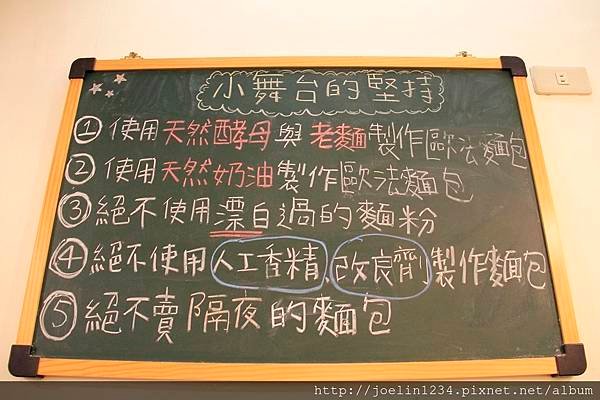 小舞台的堅持
① 使用天然酵母與老麵製作歐法麵包
② 使用天然奶油製作歐法麵包
③ 絕不使用漂白過的麵粉
④ 絕不使用人工香精、改良劑製作麵包
⑤ 絕不賣隔夜的麵包
http://joelin1234.pixnet.net/album